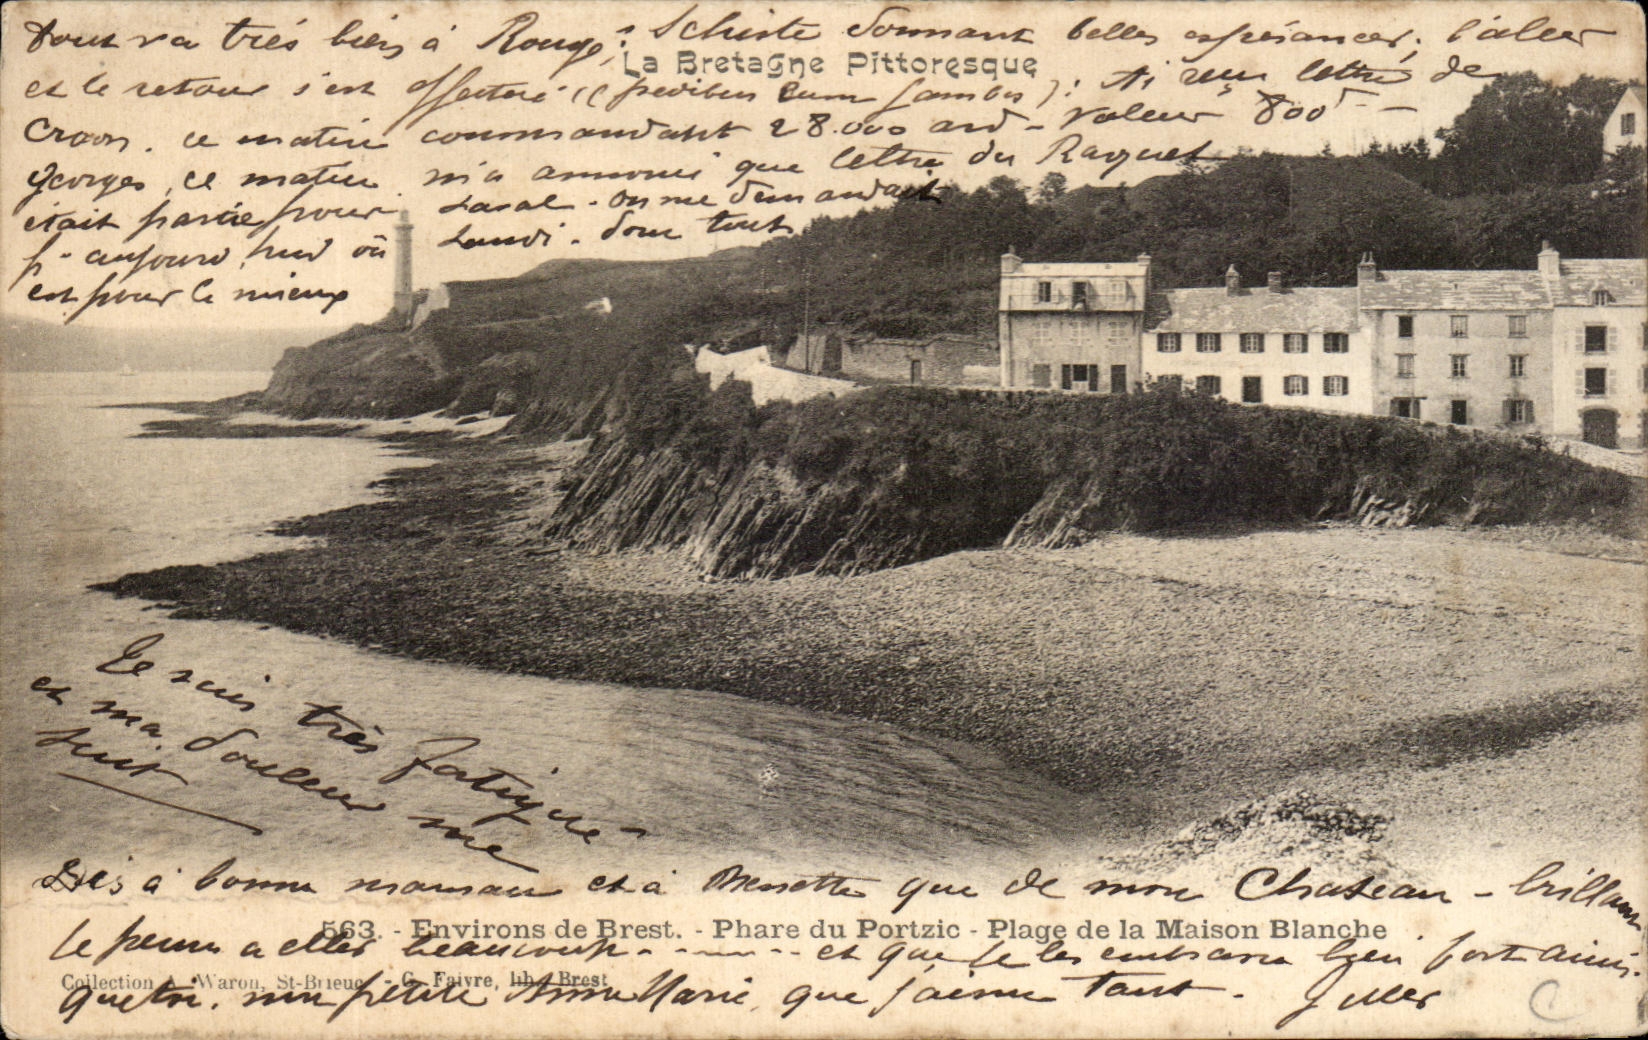 Tout va très bien à Rougé ; Schiste donnant belles espérances ; l'aller
La Bretagne Pittoresque
et le retour s'est effectué (( pedibus cum jambis ) : Ai reçu lettre de
Craon. ce matin commandant 28.000 ard - valeur 800f -
Georges, ce matin m'a annoncé que lettre du Raguet
était partie pour Laval - on me demandait
p. aujourd'hui où Lundi - donc tout
est pour le mieux
Je suis très fatigué
et ma douleur me
suit
Dis à bonne maman et à que de mon Chateau - brillant
563. - Environs de Brest. - Phare du Portzic - Plage de la Maison Blanche
je pense a elles beaucoup - - - - et que je les embrasse bien fort ainsi
Collection A. Waron, St-Brieuc - G. Faivre, lib. Brest
que toi. mon petite Anne Marie, que j'aime tant. Jules
C